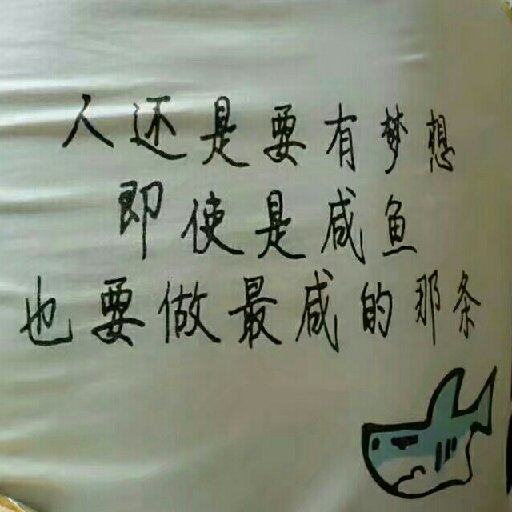 人还是要有梦想
即使是咸鱼
也要做最咸的那条